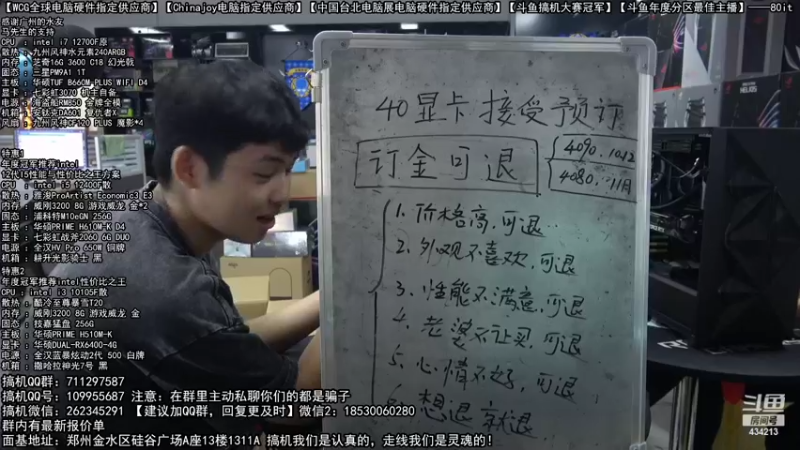 【WCG全球电脑硬件指定供应商】【Chinajoy电脑指定供应商】【中国台北电脑展电脑硬件指定供应商】【斗鱼搞机大赛冠军】【斗鱼年度分区最佳主播】——80it
感谢广州的水友
马先生的支持
CPU : intel i7 12700F原
散热 : 九州风神水元素240ARGB
内存 : 芝奇16G 3600 C18 幻光戟
固态 : 三星PM9A1 1T
主板 : 华硕TUF B660M PLUS WIFI D4
显卡 : 七彩虹3070 机主自备
电源 : 海盗船RM850 金牌全模
机箱 : 安钛克DA601 复仇者X
风扇 : 九州风神CF120 PLUS 魔影*4
特惠1
年度冠军推荐intel
12代I5性能与性价比之王方案
CPU : intel i5 12400F散
散热 : 雅浚ProArtist Economic3 E3
内存 : 威刚3200 8G 游戏威龙 金*2
固态 : 浦科特M10eGN 256G
主板 : 华硕PRIME H610M-K D4
显卡 : 七彩虹战斧2060 6G DUO
电源 : 全汉HV Pro 650W 铜牌
机箱 : 耕升光影骑士 黑
特惠2
年度冠军推荐intel性价比之王
CPU : intel i3 10105F散
散热 : 酷冷至尊暴雪T20
内存 : 威刚3200 8G 游戏威龙 金
固态 : 技嘉猛盘 256G
主板 : 华硕PRIME H510M-K
显卡 : 华硕DUAL-RX6400-4G
电源 : 全汉蓝暴炫动2代 500 白牌
机箱 : 撒哈拉神光7号 黑
搞机QQ群: 711297587
搞机QQ号: 109955687 注意: 在群里主动私聊你们的都是骗子
搞机微信: 262345291 【建议加QQ群，回复更及时】微信2: 18530060280
群内有最新报价单
面基地址: 郑州金水区硅谷广场A座13楼1311A 搞机我们是认真的，走线我们是灵魂的！
40显卡接受预订
订金可退
4090. 10.12
4080. 11月
1. 价格高,可退
2. 外观不喜欢,可退
3. 性能不满意,可退
4. 老婆不让买,可退
5. 心情不好,可退
6. 想退就退
斗鱼
房间号
434213